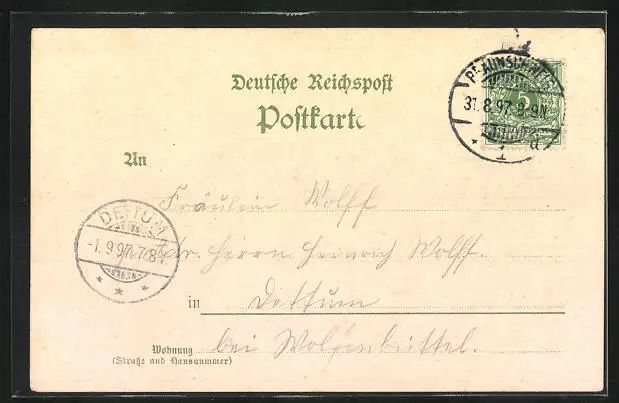 Deutsche Reichspost
Postkarte
BRAUNSCHWEIG
31.8.97.8-9N.
* 1 d
5
An
Fräulein Wolff
DETTUM
-1.9.97.7-8V
adr. Herrn Heinrich Wolff.
in Dettum
Wohnung bei Wolfenbüttel.
(Straße und Hausnummer)